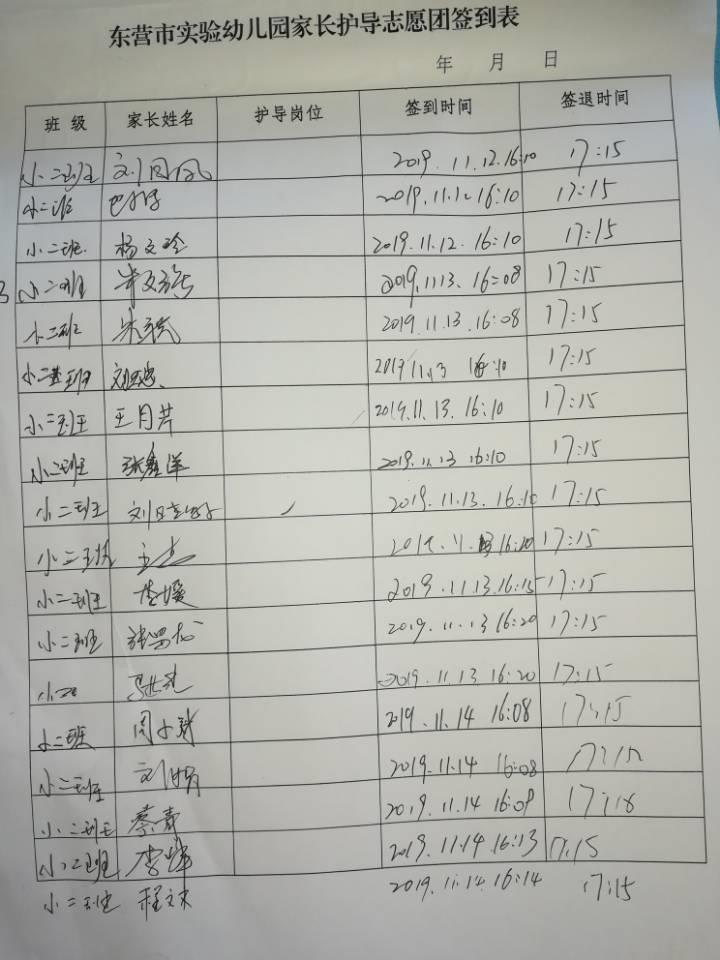 东营市实验幼儿园家长护导志愿团签到表
年 月 日
班 级 家长姓名 护导岗位 签到时间 签退时间
小二班 刘 2019.11.12.16:10 17:15
小二班 2019.11.12 16:10 17:15
小二班. 杨文玲 2019.11.12.16:10 17:15
小二班 2019.11.13.16:08 17:15
小二班 2019.11.13.16:08 17:15
小二班 刘 2019 11.13 16:10 17:15
小二班 王月芹 2019.11.13.16:10 17:15
小二班 张鑫洋 2019.11.13 16:10 17:15
小二班 刘 2019.11.13.16:10 17:15
小二班 2019.11.13 16:20 17:15
小二班 李媛 2019.11.13.16:15 17:15
小二班 张 2019.11.13 16:20 17:15
小二 2019.11.13 16:20 17:15
小二班 周小 2019.11.14 16:08 17:15
小二班 刘娟 2019.11.14 16:08 17:15
小二班 蔡青 2019.11.14 16:09 17:16
小二班 李 2019.11.14 16:13 17:15
小二班 程文 2019.11.14.16:14 17:15